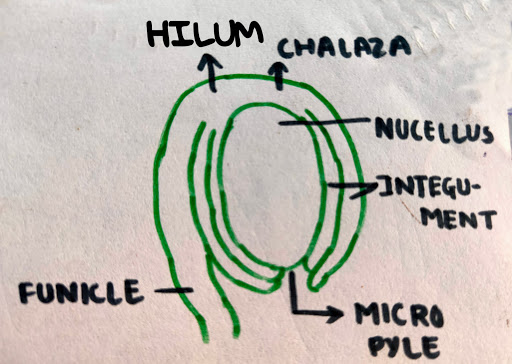 HILUM
CHALAZA
NUCELLUS
INTEGU-
MENT
FUNICLE
MICRO
PYLE